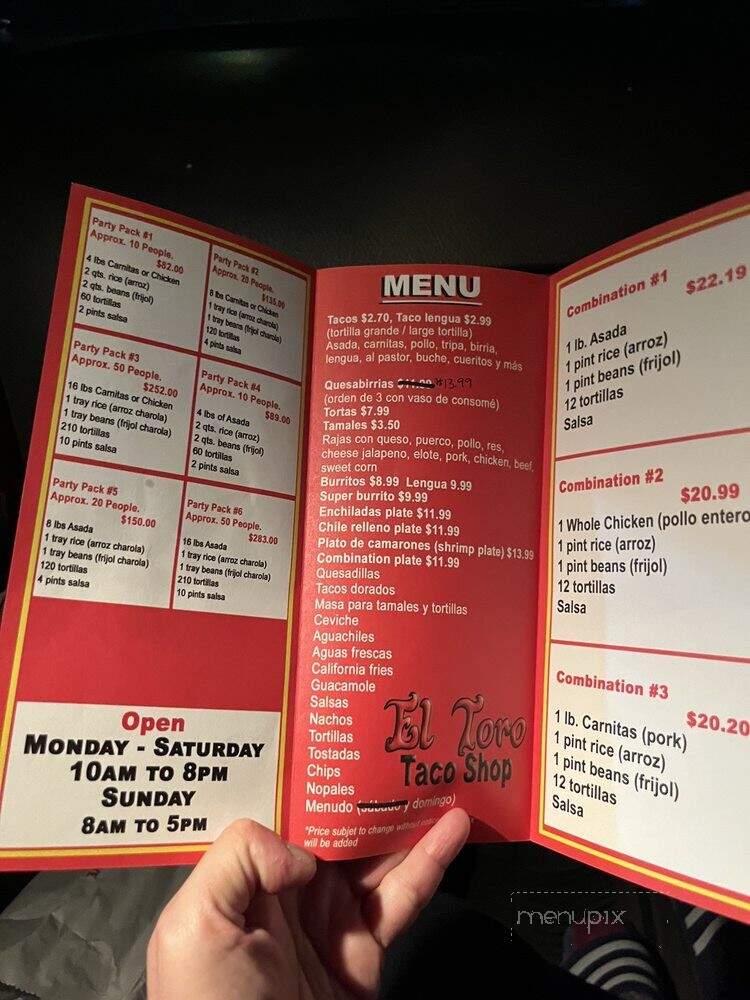 Party Pack #1
Approx. 10 People.
$82.00
4 lbs Carnitas or Chicken
2 qts. rice (arroz)
2 qts. beans (frijol)
60 tortillas
2 pints salsa
Party Pack #2
Approx. 20 People.
$135.00
8 lbs Carnitas or Chicken
1 tray rice (arroz charola)
1 tray beans (frijol charola)
120 tortillas
4 pints salsa
Party Pack #3
Approx. 50 People.
$252.00
16 lbs Carnitas or Chicken
1 tray rice (arroz charola)
1 tray beans (frijol charola)
210 tortillas
10 pints salsa
Party Pack #4
Approx. 10 People.
$89.00
4 lbs of Asada
2 qts. rice (arroz)
2 qts. beans (frijol)
60 tortillas
2 pints salsa
Party Pack #5
Approx. 20 People.
$150.00
8 lbs Asada
1 tray rice (arroz charola)
1 tray beans (frijol charola)
120 tortillas
4 pints salsa
Party Pack #6
Approx. 50 People.
$283.00
16 lbs Asada
1 tray rice (arroz charola)
1 tray beans (frijol charola)
210 tortillas
10 pints salsa
Open
MONDAY - SATURDAY
10AM TO 8PM
SUNDAY
8AM TO 5PM
MENU
Tacos $2.70, Taco lengua $2.99
(tortilla grande / large tortilla)
Asada, carnitas, pollo, tripa, birria,
lengua, al pastor, buche, cueritos y más
Quesabirrias $13.99
(orden de 3 con vaso de consomé)
Tortas $7.99
Tamales $3.50
Rajas con queso, puerco, pollo, res,
cheese jalapeno, elote, pork, chicken, beef,
sweet corn
Burritos $8.99 Lengua 9.99
Super burrito $9.99
Enchiladas plate $11.99
Chile relleno plate $11.99
Plato de camarones (shrimp plate) $13.99
Combination plate $11.99
Quesadillas
Tacos dorados
Masa para tamales y tortillas
Ceviche
Aguachiles
Aguas frescas
California fries
Guacamole
Salsas
Nachos
Tortillas
Tostadas
Chips
Nopales
Menudo (sábado y domingo)
El Toro
Taco Shop
*Price subjet to change without
will be added
Combination #1
$22.19
1 lb. Asada
1 pint rice (arroz)
1 pint beans (frijol)
12 tortillas
Salsa
Combination #2
$20.99
1 Whole Chicken (pollo entero
1 pint rice (arroz)
1 pint beans (frijol)
12 tortillas
Salsa
Combination #3
$20.20
1 lb. Carnitas (pork)
1 pint rice (arroz)
1 pint beans (frijol)
12 tortillas
Salsa
menupix